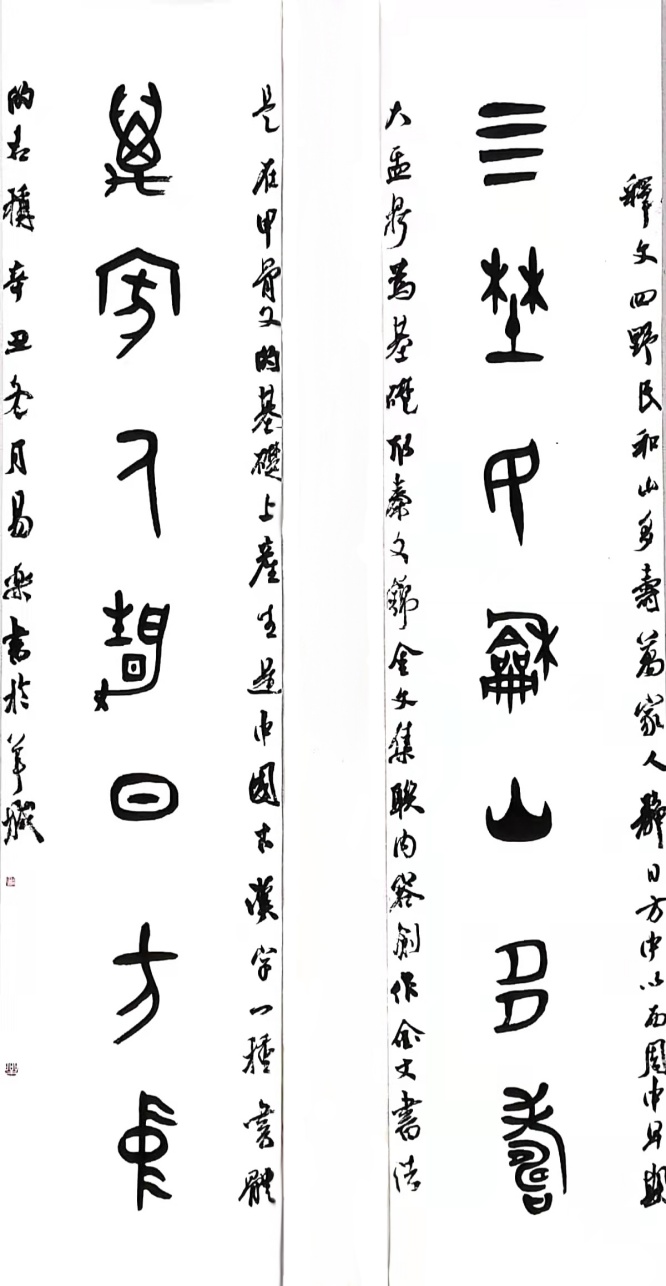 釋文四野民和山多壽萬家人靜日方中以西周中早期
四野民和山多壽
大盂鼎為基礎取秦文錦金文集聯內容創作金文書法
是在甲骨文的基礎上產生是中國古漢字一種書體
萬家人靜日方中
的名稱辛丑冬月易樂書於羊城